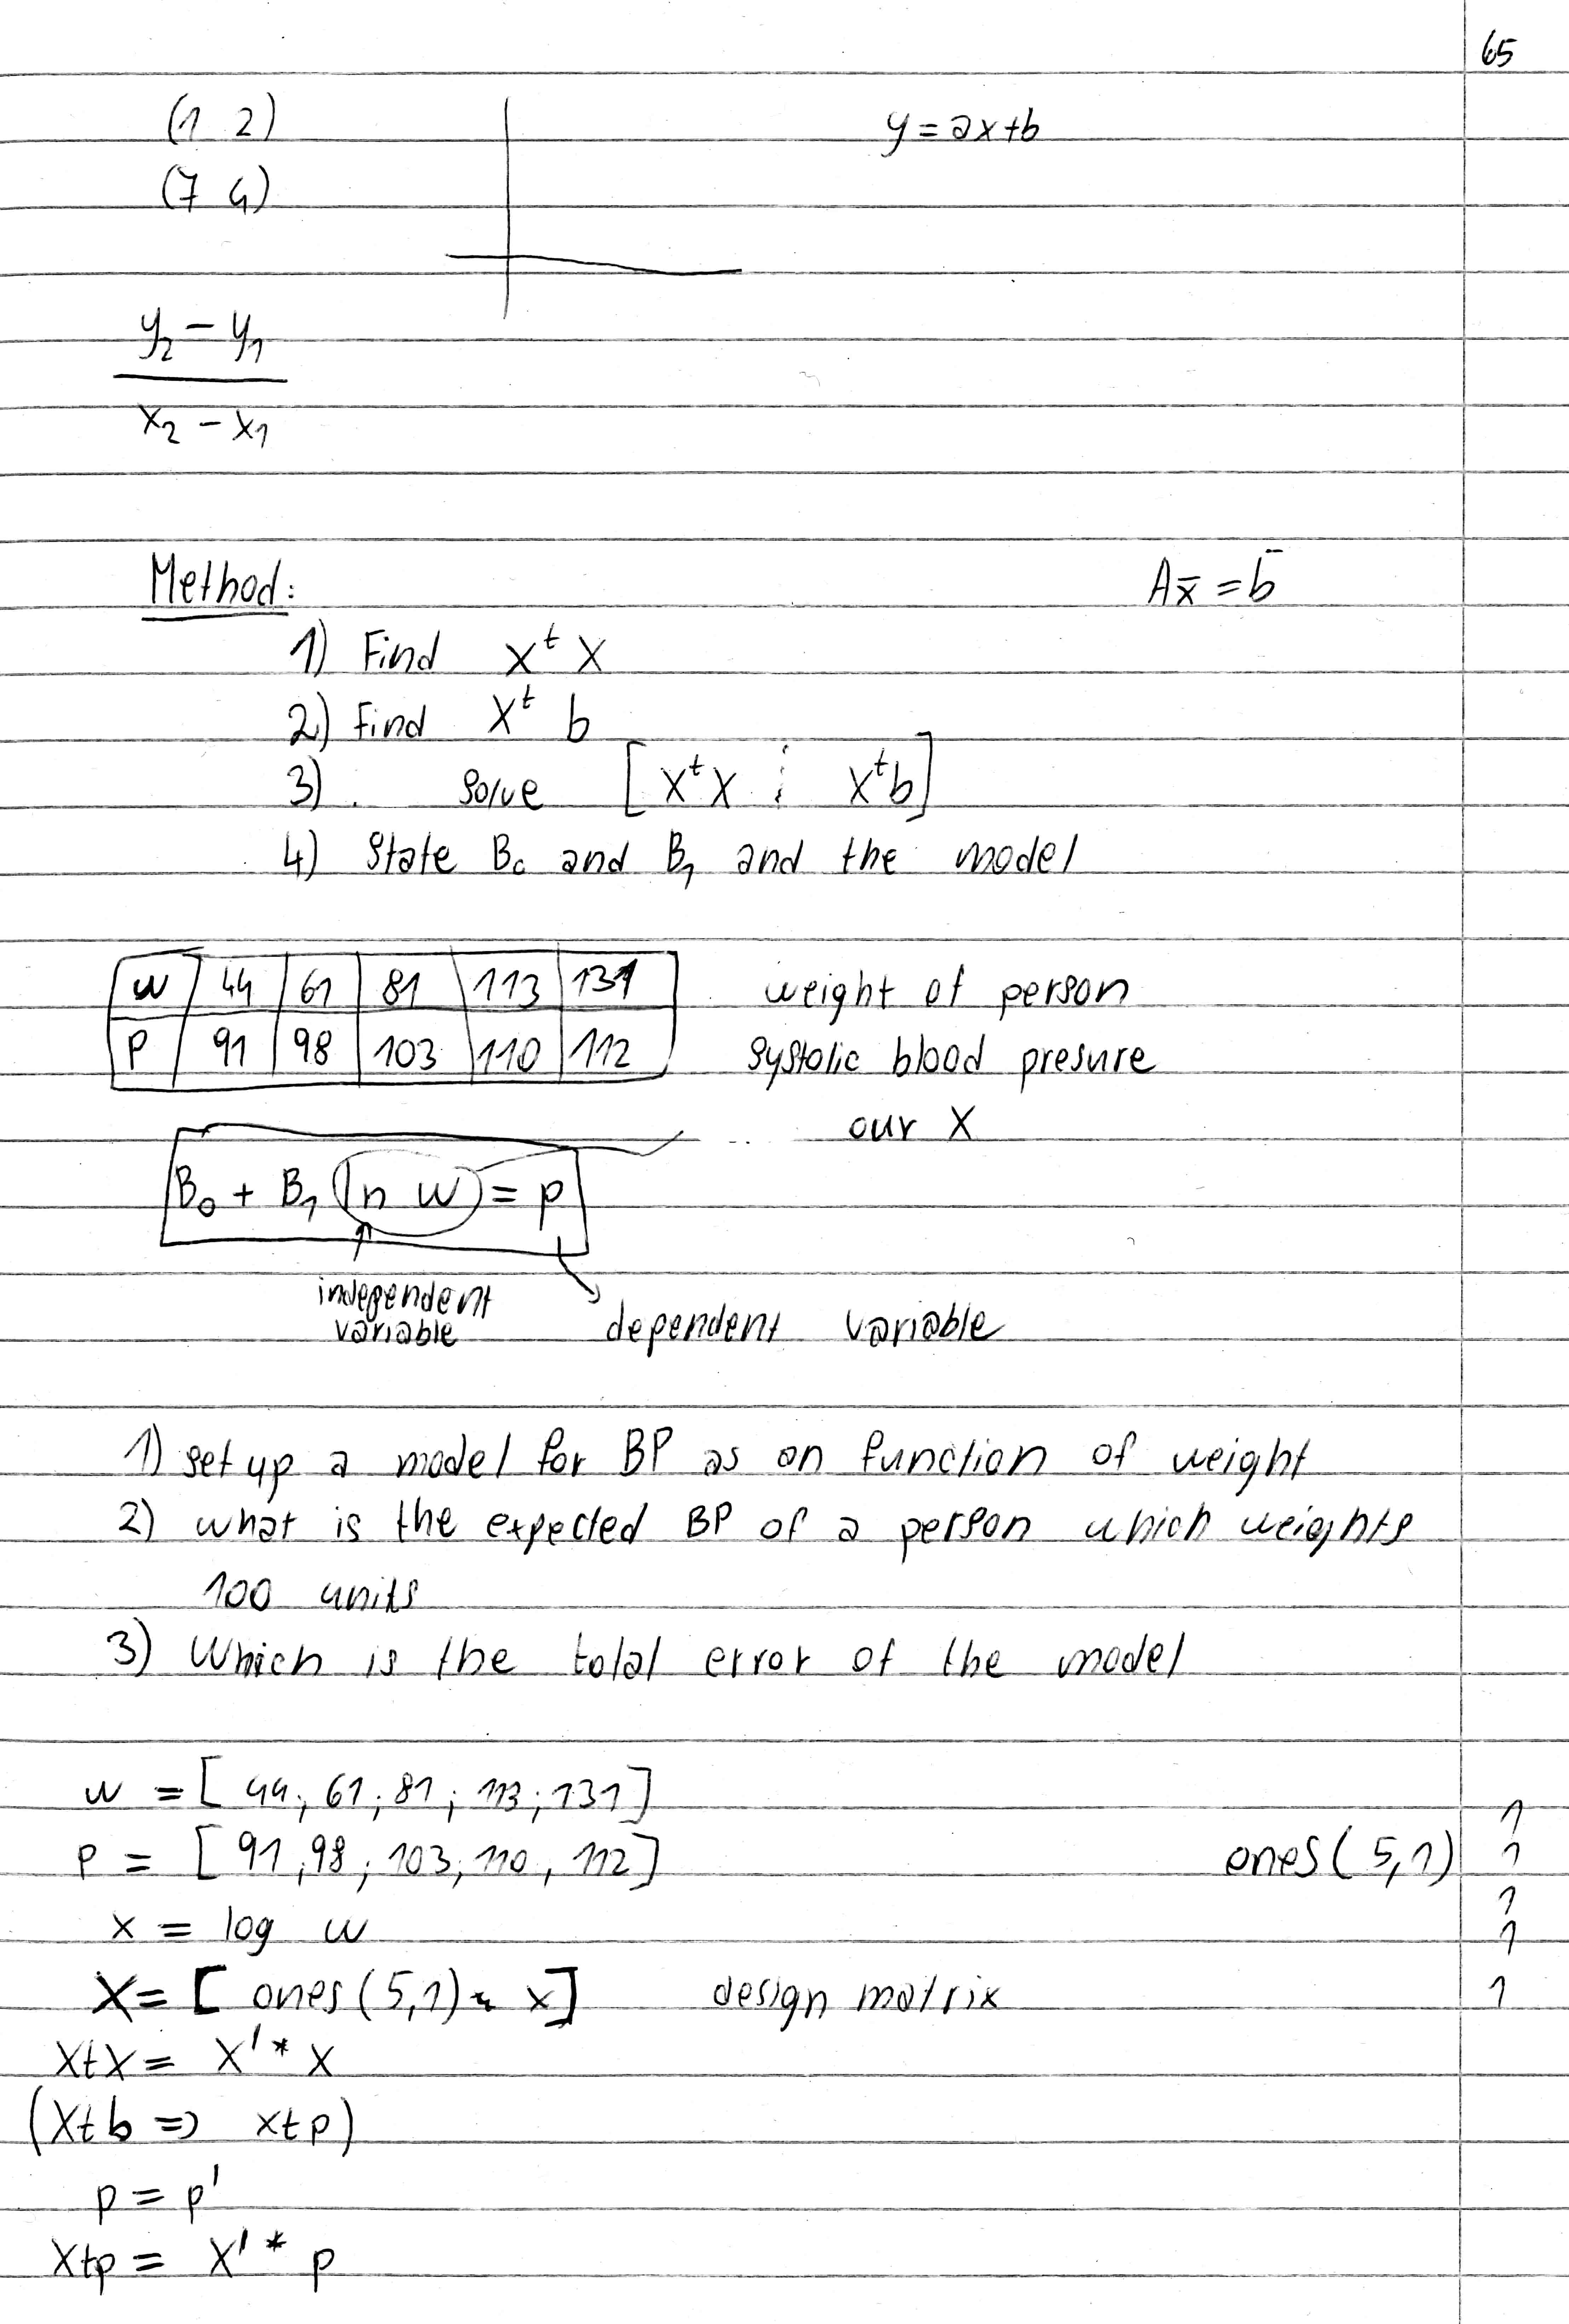 65
(1 2) y = ax+b
(7 4)
y₂ − y₁
x₂ − x₁
Method: Ax̄ = b̄
1) Find Xᵗ X
2) Find Xᵗ b
3) . solve [XᵗX ⋮ Xᵗb]
4) State B₀ and B₁ and the model
w 44 61 81 113 131 weight of person
P 91 98 103 110 112 systolic blood presure
our X
B₀ + B₁ (ln w) = p
independent
variable
dependent variable
1) set up a model for BP as on function of weight
2) what is the expected BP of a person which weights
100 units
3) Which is the total error of the model
w = [44; 61; 81; 113; 131]
P = [91, 98, 103, 110, 112] ones(5,1)
1
1
1
1
1
x = log w
X = [ones(5,1) x] design matrix
XtX = X'* X
(Xtb => xtp)
p = p'
Xtp = X'* p